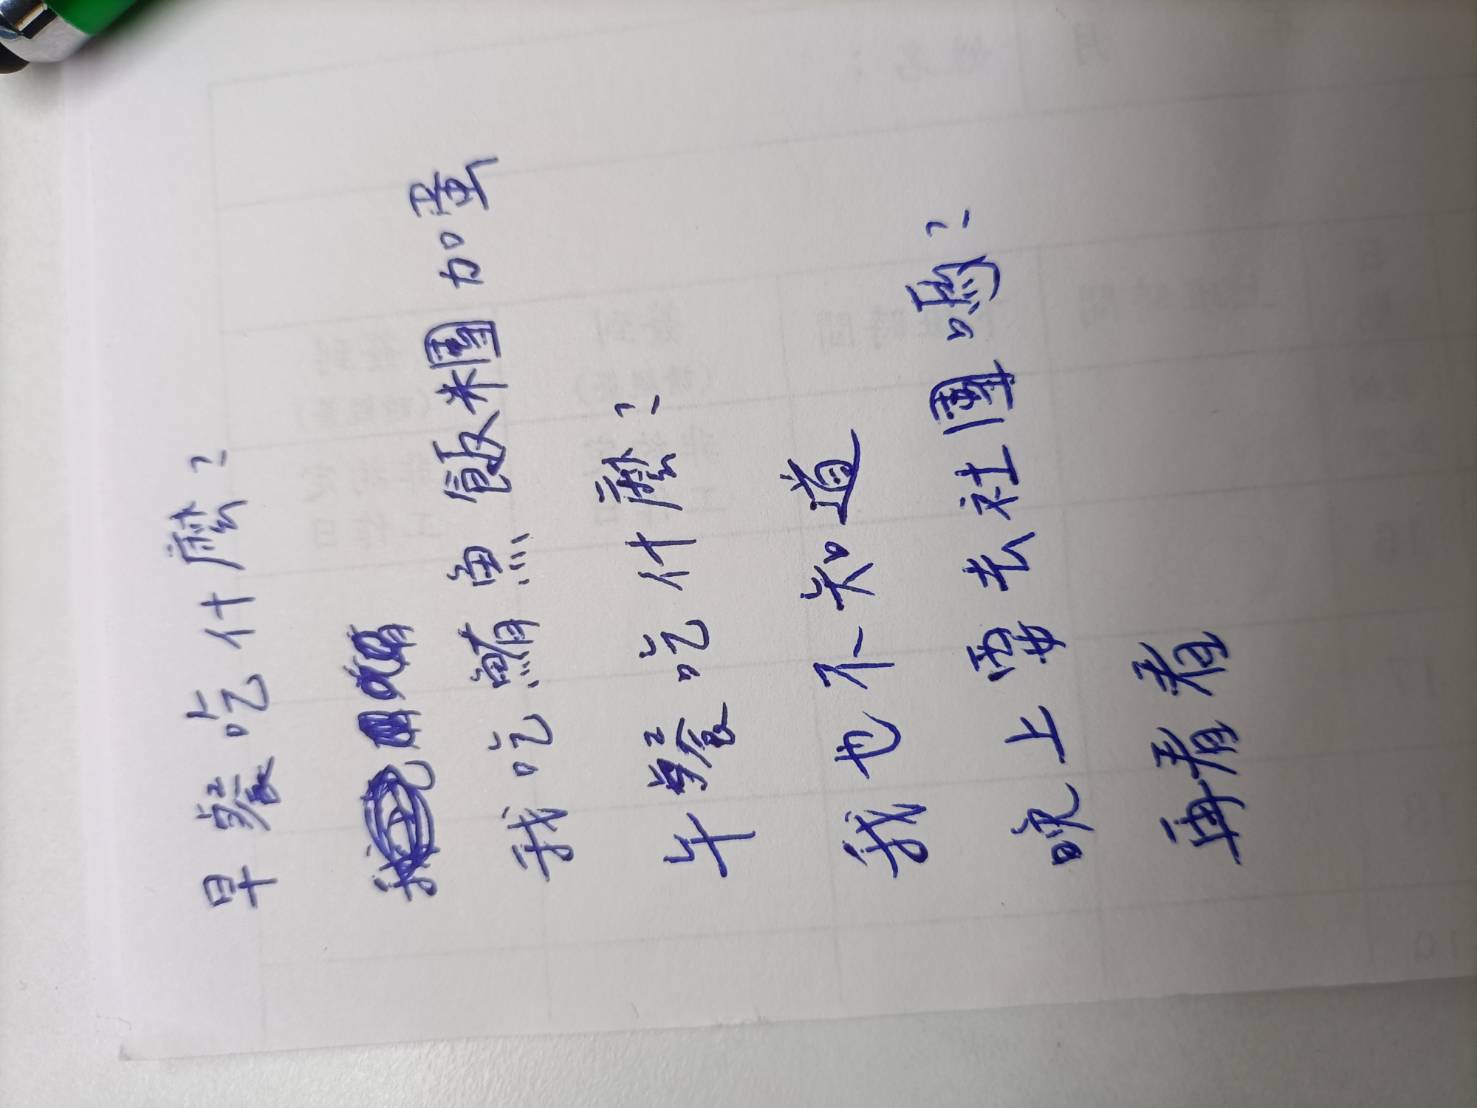 早餐吃什麼?
我吃鮪魚飯糰加蛋
午餐吃什麼?
我也不知道
晚上要去社團嗎?
再看看